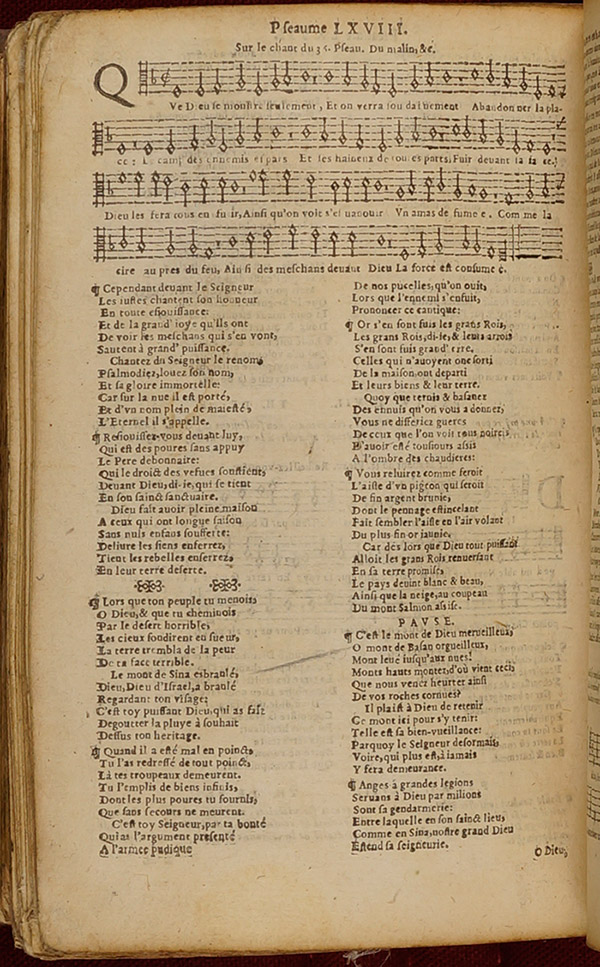 Pſeaume LXVIII.
Sur le chant du 36. Pſeau. Du malin, &c.
QVe Dieu ſe monſtre ſeulement, Et on verra ſoudainement Abandonner la pla-
ce: Le camp des ennemis eſpars Et ſes haineux de toutes parts, Fuir devant ſa face.
Dieu les fera tous enfuir, Ainſi qu'on voit s'eſvanouir Vn amas de fumee. Comme la
cire aupres du feu, Ainſi des meſchans devant Dieu La force eſt conſumee.
¶ Cependant devant le Seigneur
Les iuſtes chantent ſon honneur
En toute eſiouiſſance:
Et de la grand' ioye qu'ils ont
De voir les meſchans qui s'en vont,
Sautent à grand' puiſſance.
Chantez du Seigneur le renom,
Pſalmodiez, louez ſon nom,
Et ſa gloire immortelle:
Car ſur la nue il eſt porté,
Et d'vn nom plein de maieſté,
L'Eternel il s'appelle.
¶ Reſiouiſſez-vous devant luy,
Qui eſt des poures ſans appuy
Le Pere debonnaire:
Qui le droict des vefues ſouſtient,
Devant Dieu, di-ie, qui ſe tient
En ſon ſainct ſanctuaire.
Dieu fait avoir pleine maiſon
A ceux qui ont longue ſaiſon
Sans nuls enfans ſoufferte:
Deliure les ſiens enferrez,
Tient les rebelles enſerrez,
En leur terre deſerte.
¶ Lors que ton peuple tu menois,
O Dieu, & que tu cheminois
Par le deſert horrible,
Les cieux fondirent en ſueur,
La terre trembla de la peur
De ta face terrible.
Le mont de Sina esbranlé,
Dieu, Dieu d'Iſrael, a branlé
Regardant ton viſage:
C'eſt toy puiſſant Dieu, qui as fait
Degoutter la pluye à ſouhait
Deſſus ton heritage.
¶ Quand il a eſté mal en poinct,
Tu l'as redreſſé de tout poinct,
Là tes troupeaux demeurent.
Tu l'emplis de biens infinis,
Dont les plus poures tu fournis,
Que ſans ſecours ne meurent.
C'eſt toy Seigneur, par ta bonté
Qui as l'argument preſenté
A l'armee pudique
De nos pucelles, qu'on ouit,
Lors que l'ennemi s'enfuit,
Prononcer ce cantique:
¶ Or s'en ſont fuis les grans Rois,
Les grans Rois, di-ie, & leurs arrois
S'en ſont fuis grand' erre.
Celles qui n'auoyent onc ſorti
De la maiſon, ont departi
Et leurs biens & leur terre.
Quoy que ternis & baſanez
Des ennuis qu'on vous a donnez,
Vous ne differiez gueres
De ceux que l'on voit tous noircis
D'auoir eſté touſiours aſſis
A l'ombre des chaudieres:
¶ Vous reluirez comme feroit
L'aiſle d'vn pigeon qui ſeroit
De fin argent brunie,
Dont le pennage eſtincelant
Fait ſembler l'aiſle en l'air volant
Du plus fin or iaunie.
Car dés lors que Dieu tout puiſſant
Alloit les grans Rois renuerſant
En ſa terre promiſe,
Le pays deuint blanc & beau,
Ainſi que la neige, au coupeau
Du mont Salmon aſſiſe.
PAVSE.
¶ C'eſt le mont de Dieu merveilleux,
O mont de Baſan orgueilleux,
Mont leué iuſqu'aux nues!
Monts hauts montez, d'où vient ceci,
Que nous venez heurter ainſi
De vos roches cornues?
Il plaiſt à Dieu de retenir
Ce mont ici pour s'y tenir:
Telle eſt ſa bien-vueillance:
Parquoy le Seigneur deſormais,
Voire, qui plus eſt, à iamais
Y fera demeurance.
¶ Anges à grandes legions
Seruans à Dieu par milions
Sont ſa gendarmerie:
Entre laquelle en ſon ſainct lieu,
Comme en Sina, noſtre grand Dieu
Eſtend ſa ſeigneurie.
O Dieu,